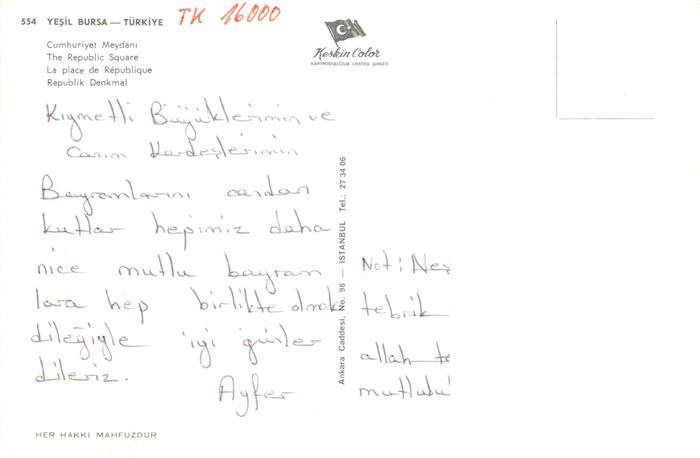 554 YEŞİL BURSA — TÜRKİYE
TK 16000
Cumhuriyet Meydanı
The Republic Square
La place de République
Republik Denkmal
Keskin Color
KARTPOSTALCILIK LIMITED ŞİRKETİ
Kıymetli Büyüklerimin ve
Canım Kardeşlerimin
Bayramlarını candan
kutlar hepimiz daha
nice mutlu bayram
lara hep birlikte olmak
dileğiyle iyi günler
dileriz.
Ayfer
Ankara Caddesi, No. 98 — İSTANBUL Tel.: 27 34 06
Not: Neş
tebrik
allah te
mutlulu
HER HAKKI MAHFUZDUR